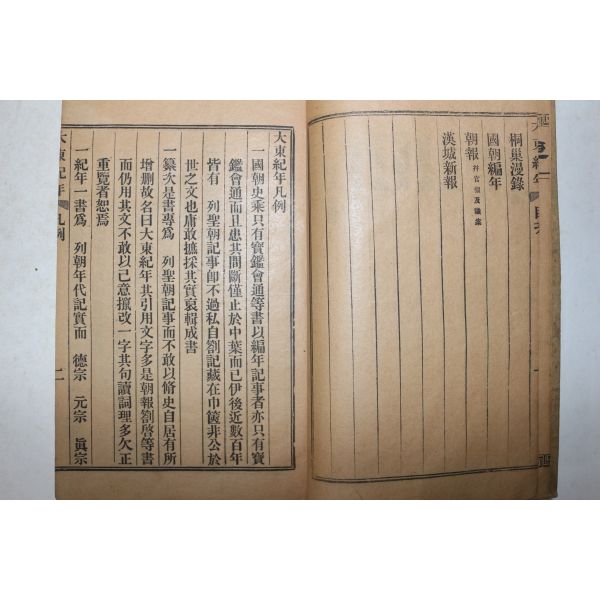 桐巢漫錄
國朝編年
朝報
漢城新報
大東紀年凡例
一國朝史乘只有寶鑑會通等書以編年記事者亦只有寶
鑑會通而且患其間斷僅止於中葉而已伊後近數百年
皆有 列聖朝記事卽不過私自劄記藏在巾篋非公於
世之文也庸敢摭採其實裒輯成書
一纂次是書專爲 列聖朝記事而不敢以脩史自居有所
增删故名曰大東紀年其引用文字多是朝報劄啓等書
而仍用其文不敢以己意攛改一字其句讀詞理多欠正
重覽者恕焉
一紀年一書爲 列朝年代記實而 德宗 元宗 眞宗
大東紀年 凡例 二